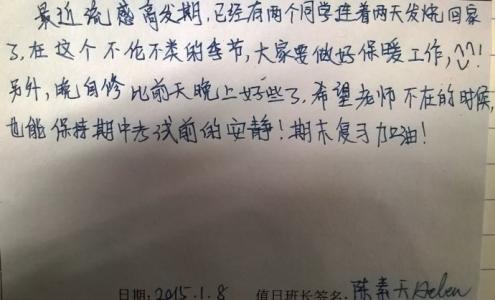 最近流感高发期,已经有两个同学连着两天发烧回家
了,在这个不伦不类的季节,大家要做好保暖工作,^^!
另外,晚自修比前天晚上好些了,希望老师不在的时候,
也能保持期中考试前的安静!期末复习加油!
日期:2015.1.8 值日班长签名:陈素天Helen